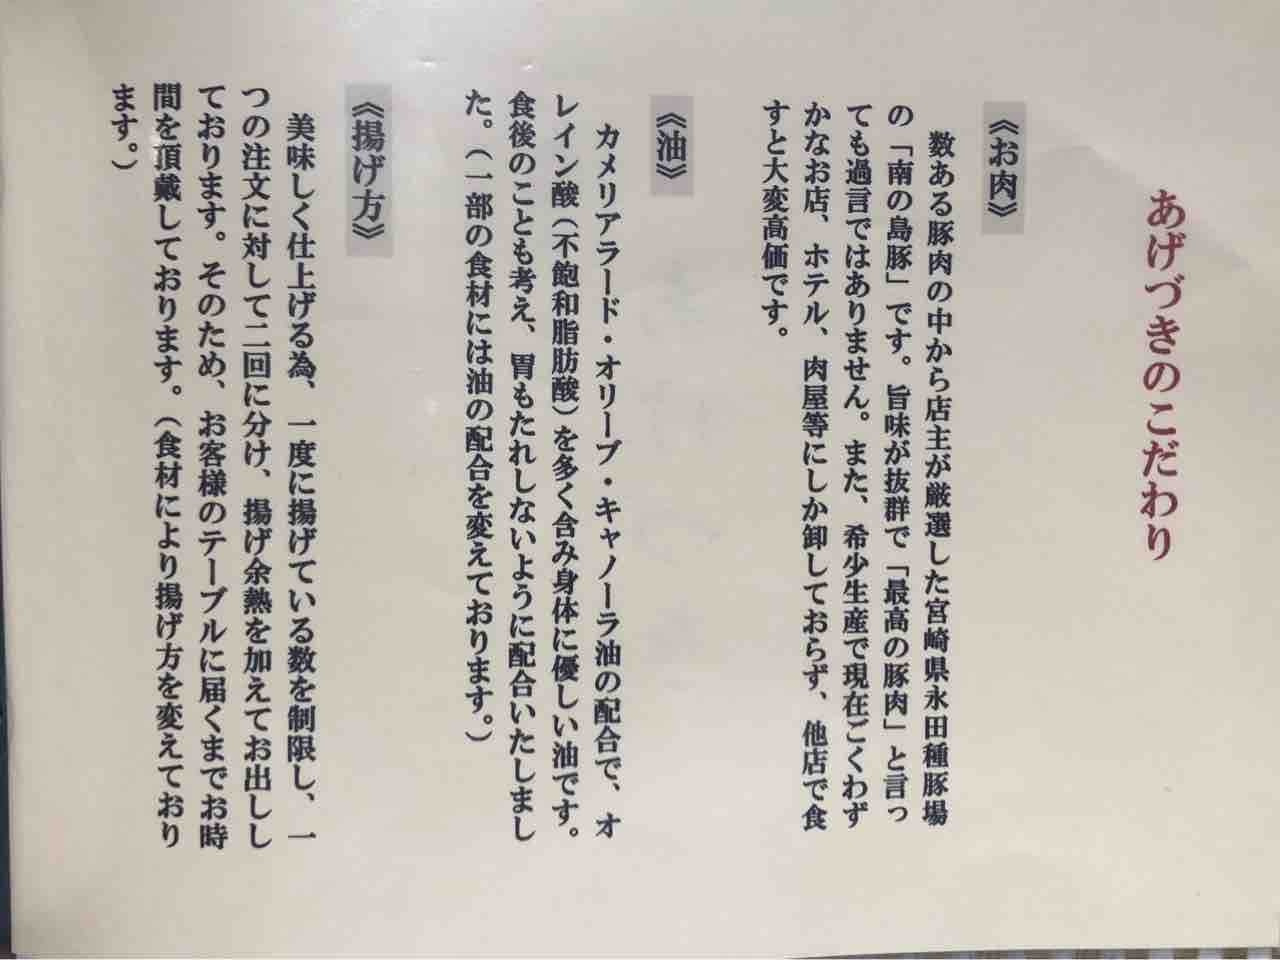 あげづきのこだわり
《お肉》
数ある豚肉の中から店主が厳選した宮崎県永田種豚場
の「南の島豚」です。旨味が抜群で「最高の豚肉」と言っ
ても過言ではありません。また、希少生産で現在ごくわず
かなお店、ホテル、肉屋等にしか卸しておらず、他店で食
すと大変高価です。
《油》
カメリアラード・オリーブ・キャノーラ油の配合で、オ
レイン酸（不飽和脂肪酸）を多く含み身体に優しい油です。
食後のことも考え、胃もたれしないように配合いたしまし
た。（一部の食材には油の配合を変えております。）
《揚げ方》
美味しく仕上げる為、一度に揚げている数を制限し、一
つの注文に対して二回に分け、揚げ余熱を加えてお出しし
ております。そのため、お客様のテーブルに届くまでお時
間を頂戴しております。（食材により揚げ方を変えており
ます。）